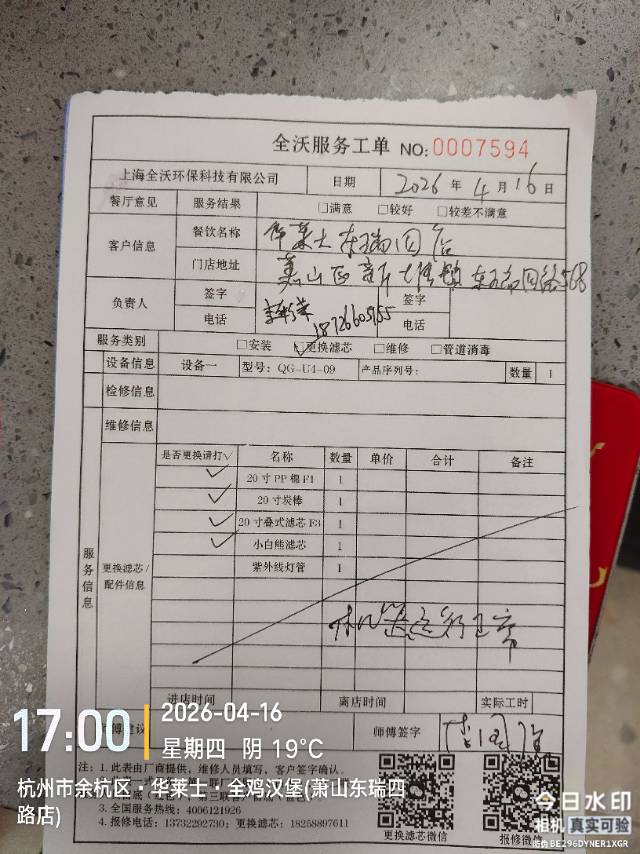 全沃服务工单 NO:0007594
上海全沃环保科技有限公司 日期 2026 年 4 月 16 日
餐厅意见 服务结果 □满意 □较好 □较差不满意
客户信息 餐饮名称 华莱士东瑞四店
门店地址 萧山区新街镇东瑞四路568
负责人 签字 签字
电话 18726605955 电话
服务类别 □安装 ☑更换滤芯 □维修 □管道消毒
设备信息 设备一 型号: QG-U4-09 产品序列号: 数量 1
检修信息
维修信息
服务信息
更换滤芯/配件信息
是否更换请打√ 名称 数量 单价 合计 备注
√ 20寸PP棉F1 1
√ 20寸炭棒 1
√ 20寸叠式滤芯F3 1
√ 小白熊滤芯 1
紫外线灯管 1
运行正常
进店时间 离店时间 实际工时
师傅签字
注: 1. 此表由厂商提供, 维修人员填写, 客户签字确认。
3. 全国服务热线: 4006121926
4. 报修电话: 13732292730; 更换滤芯: 18258897611
更换滤芯微信 报修微信
17:00 2026-04-16
星期四 阴 19°C
杭州市余杭区·华莱士·全鸡汉堡(萧山东瑞四路店)
今日水印
相机 真实可验
防伪 BE296DYNER1XGR